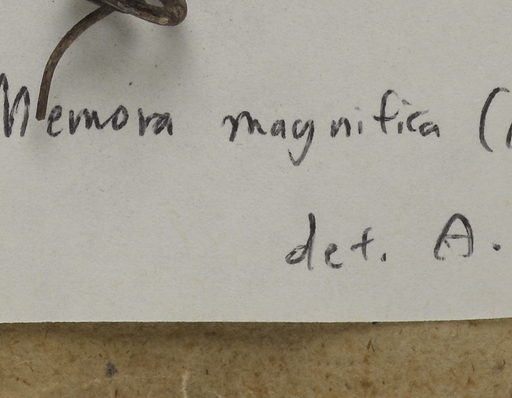 Memora magnifica (
det. A.